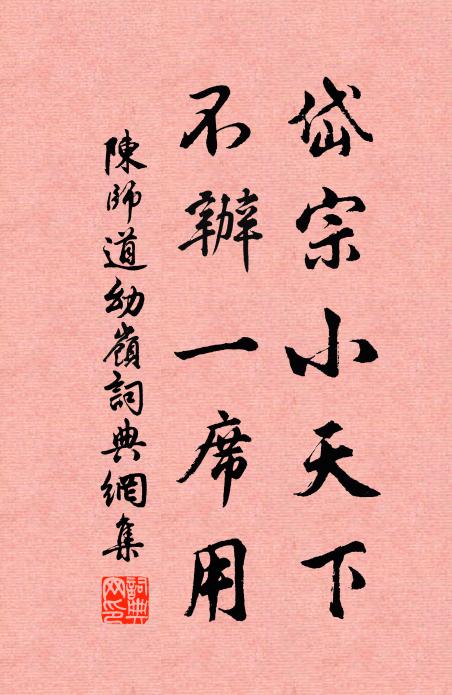 岱宗小天下
不辦一席用
陳師道幼嶺詞典網集
詞典網印